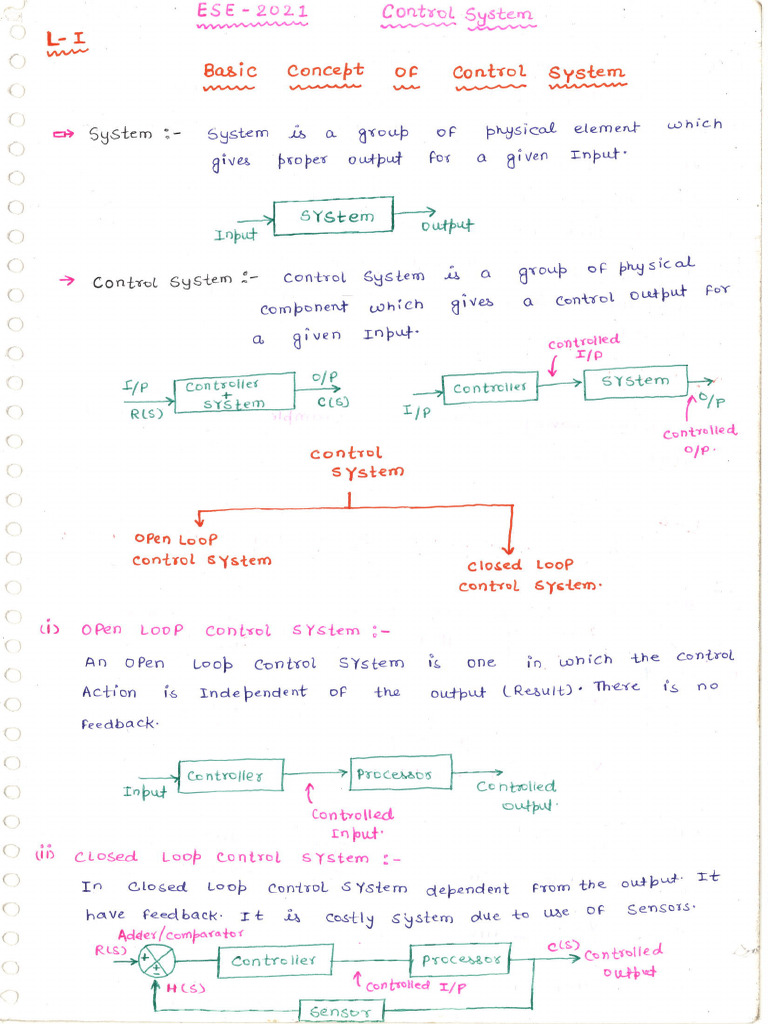 ESE - 2021 Control System
L-I
Basic Concept of Control System
System :- System is a group of physical element which
gives proper output for a given Input.
System
Input
Output
Control System :- Control System is a group of physical
component which gives a control output for
a given Input.
Controlled
I/P
I/P
R(S)
Controller
+
System
O/P
C(S)
I/P
Controller
System
O/P
Controlled
O/P.
Control
System
Open Loop
Control System
Closed Loop
Control System.
(i) Open Loop Control System :-
An Open Loop Control System is one in which the control
Action is Independent of the output (Result). There is no
feedback.
Input
Controller
Processor
Controlled
Output.
Controlled
Input.
(ii) Closed Loop Control System :-
In Closed Loop Control System dependent from the output. It
have feedback. It is costly system due to use of Sensors.
Adder/comparator
R(S)
+
±
Controller
Processor
C(S)
Controlled
Output
H(S)
Controlled I/P
Sensor